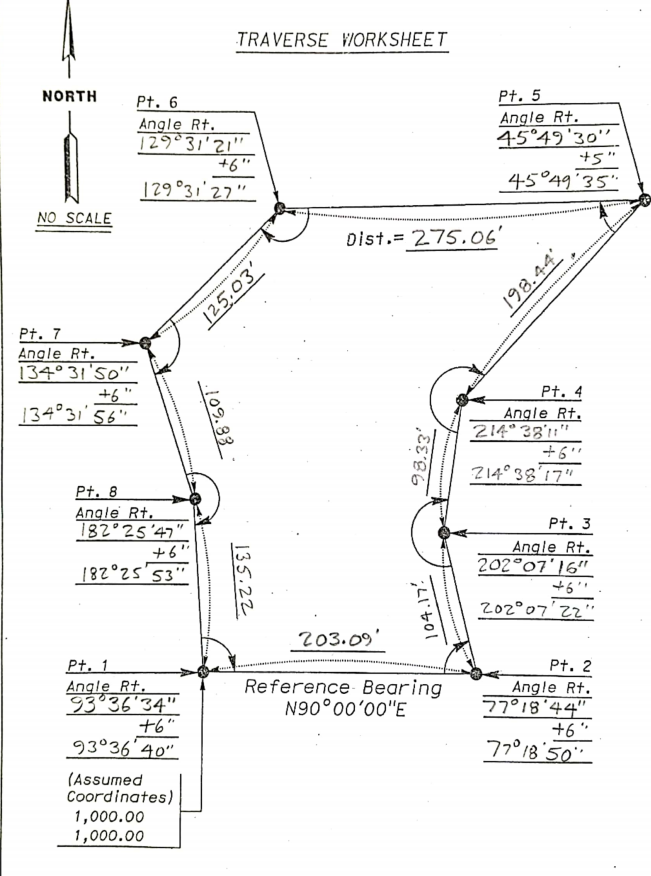 TRAVERSE WORKSHEET
NORTH
NO SCALE
Pt. 6
Angle Rt.
129°31'21"
+6"
129°31'27"
Pt. 5
Angle Rt.
45°49'30"
+5"
45°49'35"
Dist.= 275.06'
125.03'
198.44'
Pt. 7
Angle Rt.
134°31'50"
+6"
134°31'56"
109.88
Pt. 4
Angle Rt.
214°38'11"
+6"
214°38'17"
98.33'
Pt. 8
Angle Rt.
182°25'47"
+6"
182°25'53"
135.22
Pt. 3
Angle Rt.
202°07'16"
+6"
202°07'22"
104.17'
203.09'
Pt. 1
Angle Rt.
93°36'34"
+6"
93°36'40"
(Assumed
Coordinates)
1,000.00
1,000.00
Reference Bearing
N90°00'00"E
Pt. 2
Angle Rt.
77°18'44"
+6"
77°18'50"